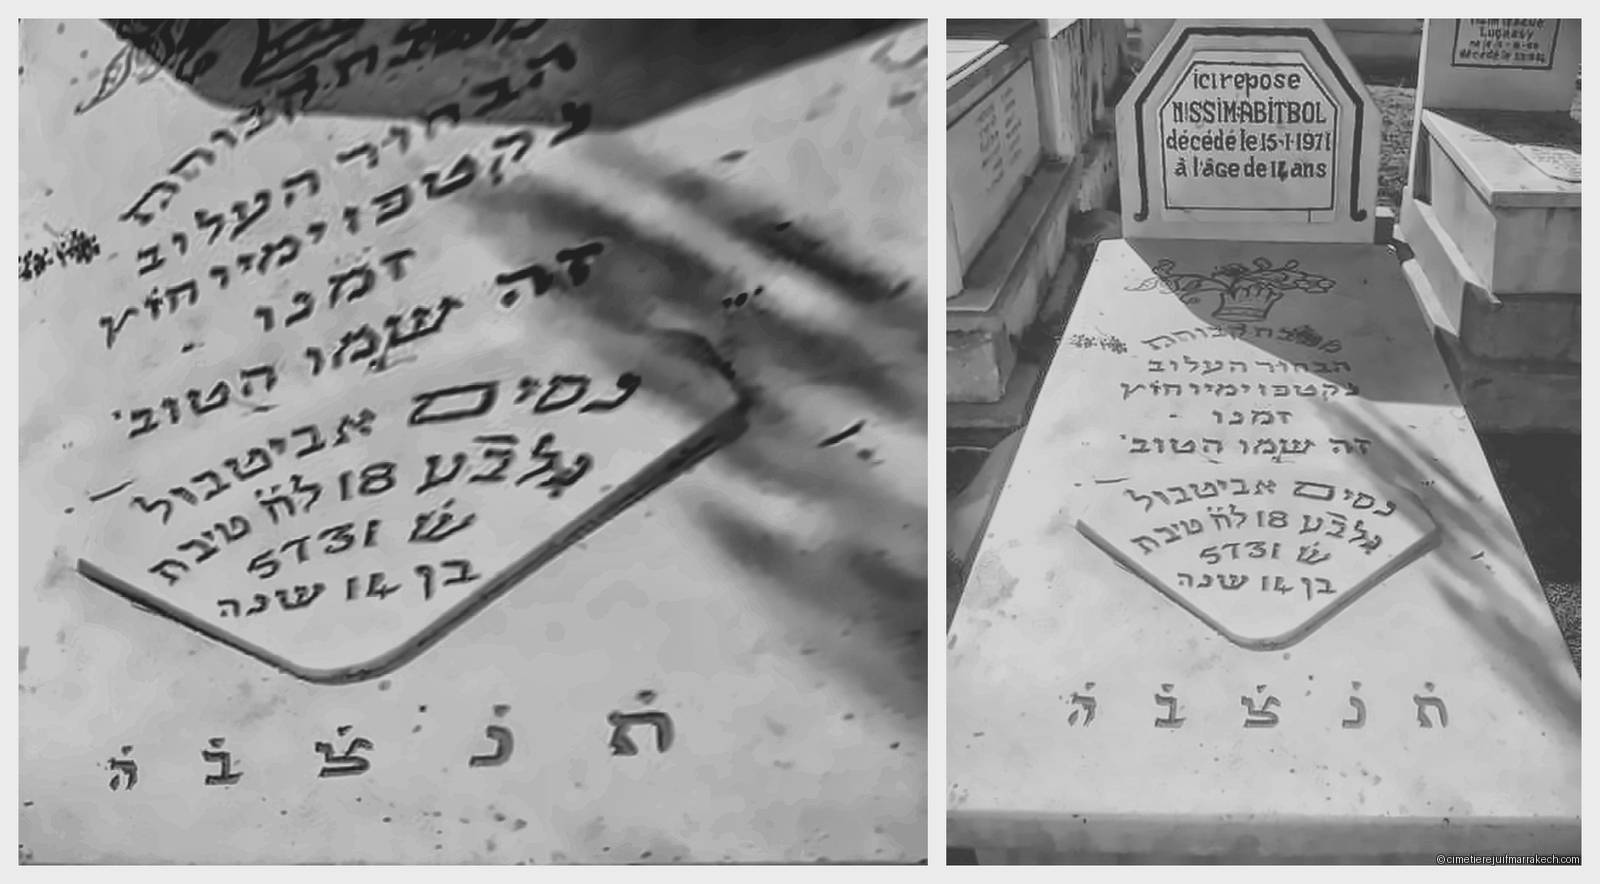 מצבת קבורת
הבחור העלוב
נקטפו ימיי חייץ
זמנו
זה שמו הטוב
נסים אביטבול
נלבע 18 לח טיבת
ש 5731
בן 14 שנה
ת נ צ ב ה
ici repose
NISSIM·ABITBOL
décédé le 15·1·1971
à l'âge de 14 ans
מצבת קבורת
הבחור העלוב
נקטפו ימיי חייץ
זמנו
זה שמו הטוב
נסים אביטבול
נלבע 18 לח טיבת
ש 5731
בן 14 שנה
ת נ צ ב ה
©cimetierejuifmarrakech.com